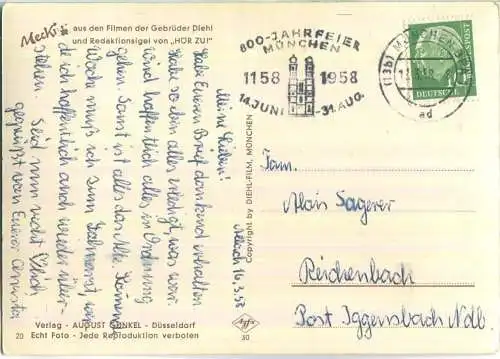 Mecki aus den Filmen der Gebrüder Diehl
und Redaktionsigel von „HÖR ZU!"
Meine Lieben!
Habe Eueren Brief dankend erhalten
Habe so dan alles erledigt, was wen.
wird hoffentlich alles in Ordnung
gehen. Sonst ist alles das Alte. Kommende
Woche muß ich zum Zahnarzt, wer-
de ich hoffentlich auch wieder über-
stehen. Seid nun recht herzlich
gegrüßt von Eurer
Verlag - AUGUST GUNKEL - Düsseldorf
20 Echt Foto - Jede Reproduktion verboten
Copyright by DIEHL-FILM, MÜNCHEN
Agfa
50
800-JAHRFEIER
MÜNCHEN
1158 1958
14. JUNI - 31. AUG.
(13b) MÜNCHEN
ad
10
DEUTSCHE BUNDESPOST
16.3.58
Fam.
Alois Sagerer
Reichenbach
Post Iggensbach Ndb.